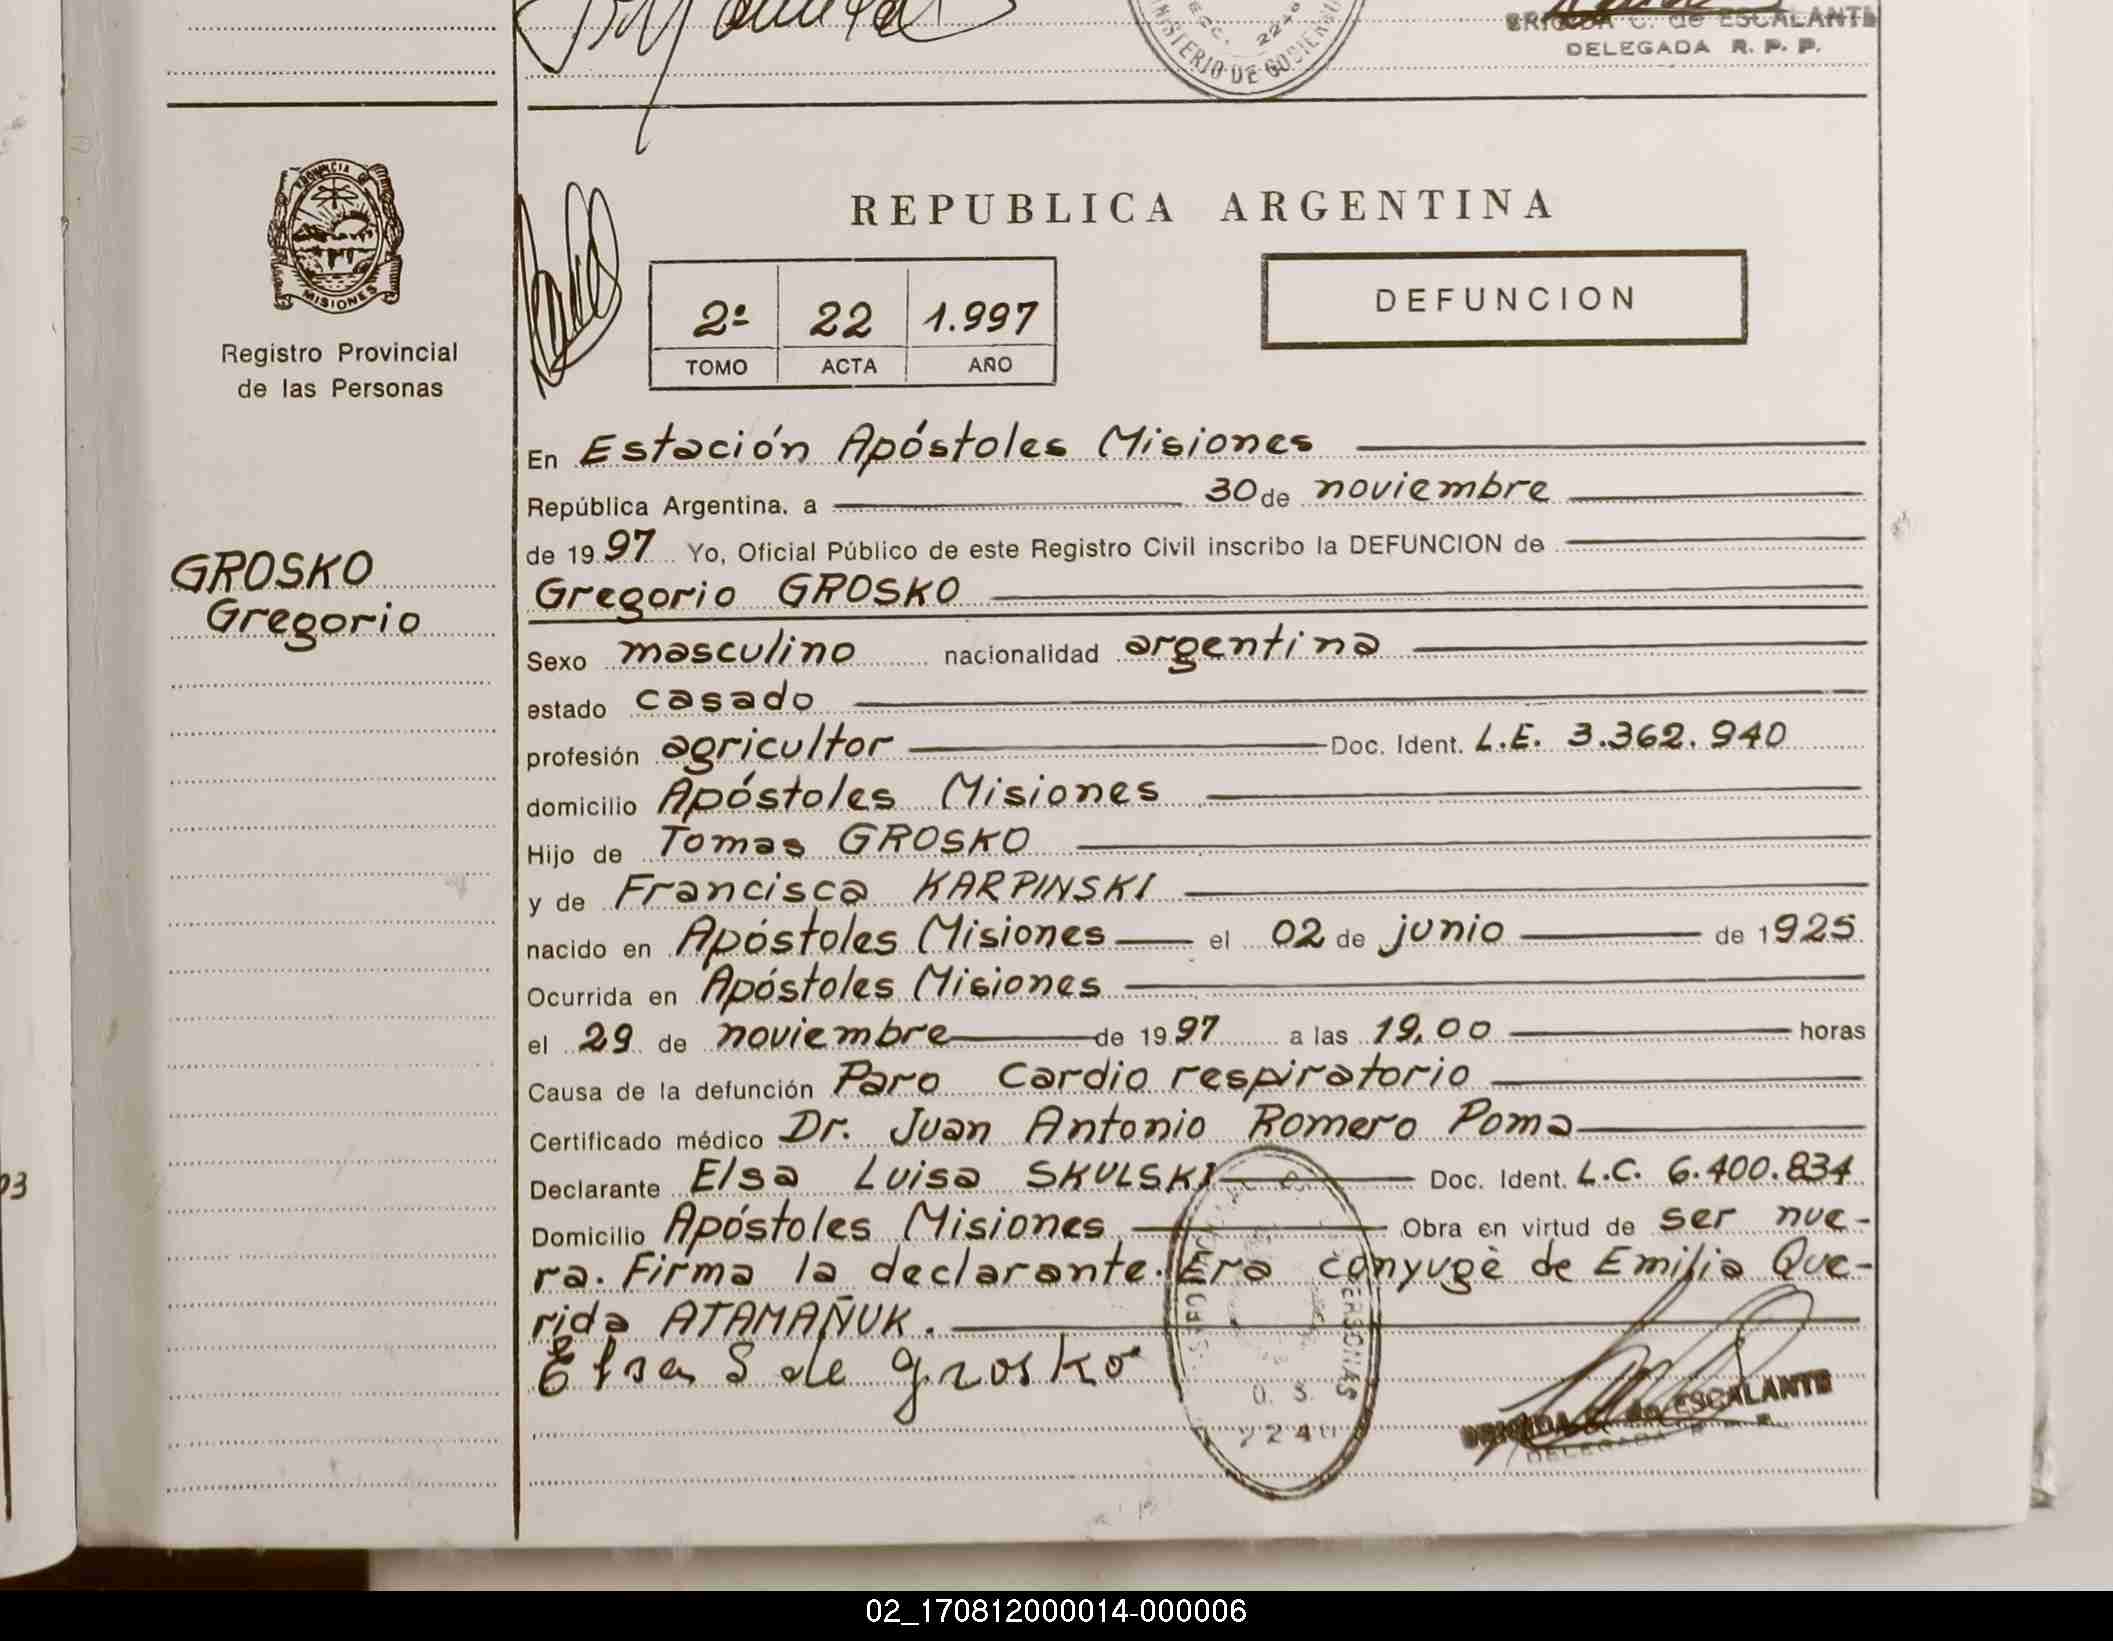 MINISTERIO DE GOBIERN
BRIGIDA C. de ESCALANTE
DELEGADA R. P. P.
PROVINCIA
MISIONES
Registro Provincial
de las Personas
REPUBLICA ARGENTINA
2º 22 1.997
TOMO ACTA AÑO
DEFUNCION
En Estación Apóstoles Misiones
República Argentina, a 30 de noviembre
de 1997 Yo, Oficial Público de este Registro Civil inscribo la DEFUNCION de
GROSKO
Gregorio
Gregorio GROSKO
Sexo masculino nacionalidad argentina
estado casado
profesión agricultor Doc. Ident. L.E. 3.362.940
domicilio Apóstoles Misiones
Hijo de Tomas GROSKO
y de Francisca KARPINSKI
nacido en Apóstoles Misiones el 02 de junio de 1925
Ocurrida en Apóstoles Misiones
el 29 de noviembre de 1997 a las 19,00 horas
Causa de la defunción Paro Cardio respiratorio
Certificado médico Dr. Juan Antonio Romero Poma
Declarante Elsa Luisa SKULSKI Doc. Ident. L.C. 6.400.834
Domicilio Apóstoles Misiones Obra en virtud de ser nue-
ra. Firma la declarante. Era conyugè de Emilia Que-
rida ATAMAÑUK.
Elsa S de Grosko
BRIGIDA C. de ESCALANTE
DELEGADA R. P. P.
02_170812000014-000006